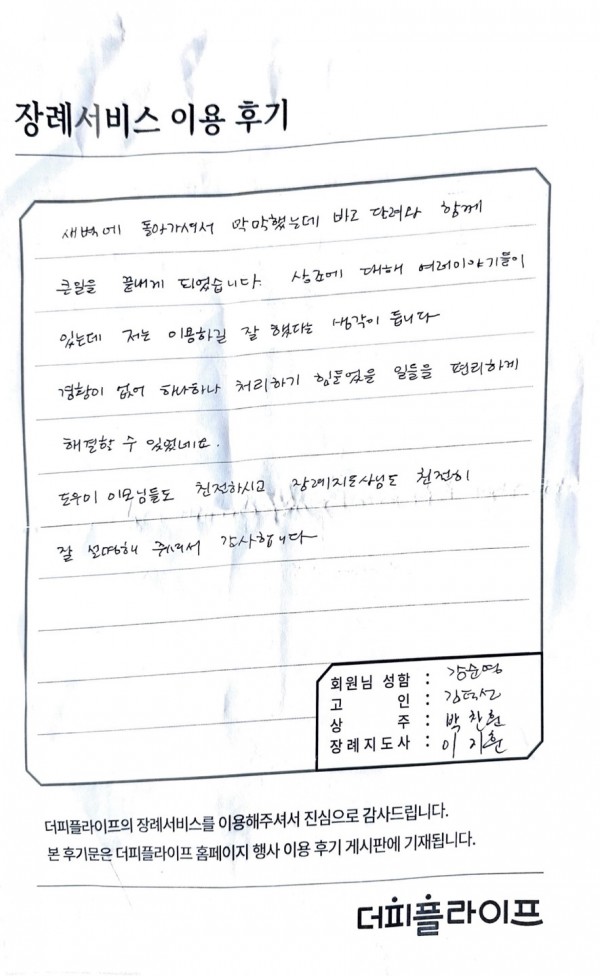 장례서비스 이용 후기
새벽에 돌아가셔서 막막했는데 바로 달려와 함께
큰일을 끝내게 되었습니다. 상조에 대해 여러이야기들이
있는데 저는 이용하길 잘 했다는 생각이 듭니다
경황이 없어 하나하나 처리하기 힘들었을 일들을 편리하게
해결할 수 있었네요.
도우미 이모님들도 친절하시고 장례지도사님도 친절히
잘 설명해 주셔서 감사합니다
회원님 성함 : 강순영
고 인 :
상 주 : 박찬훈
장례지도사 : 이지훈
더피플라이프의 장례서비스를 이용해주셔서 진심으로 감사드립니다.
본 후기문은 더피플라이프 홈페이지 행사 이용 후기 게시판에 기재됩니다.
더피플라이프